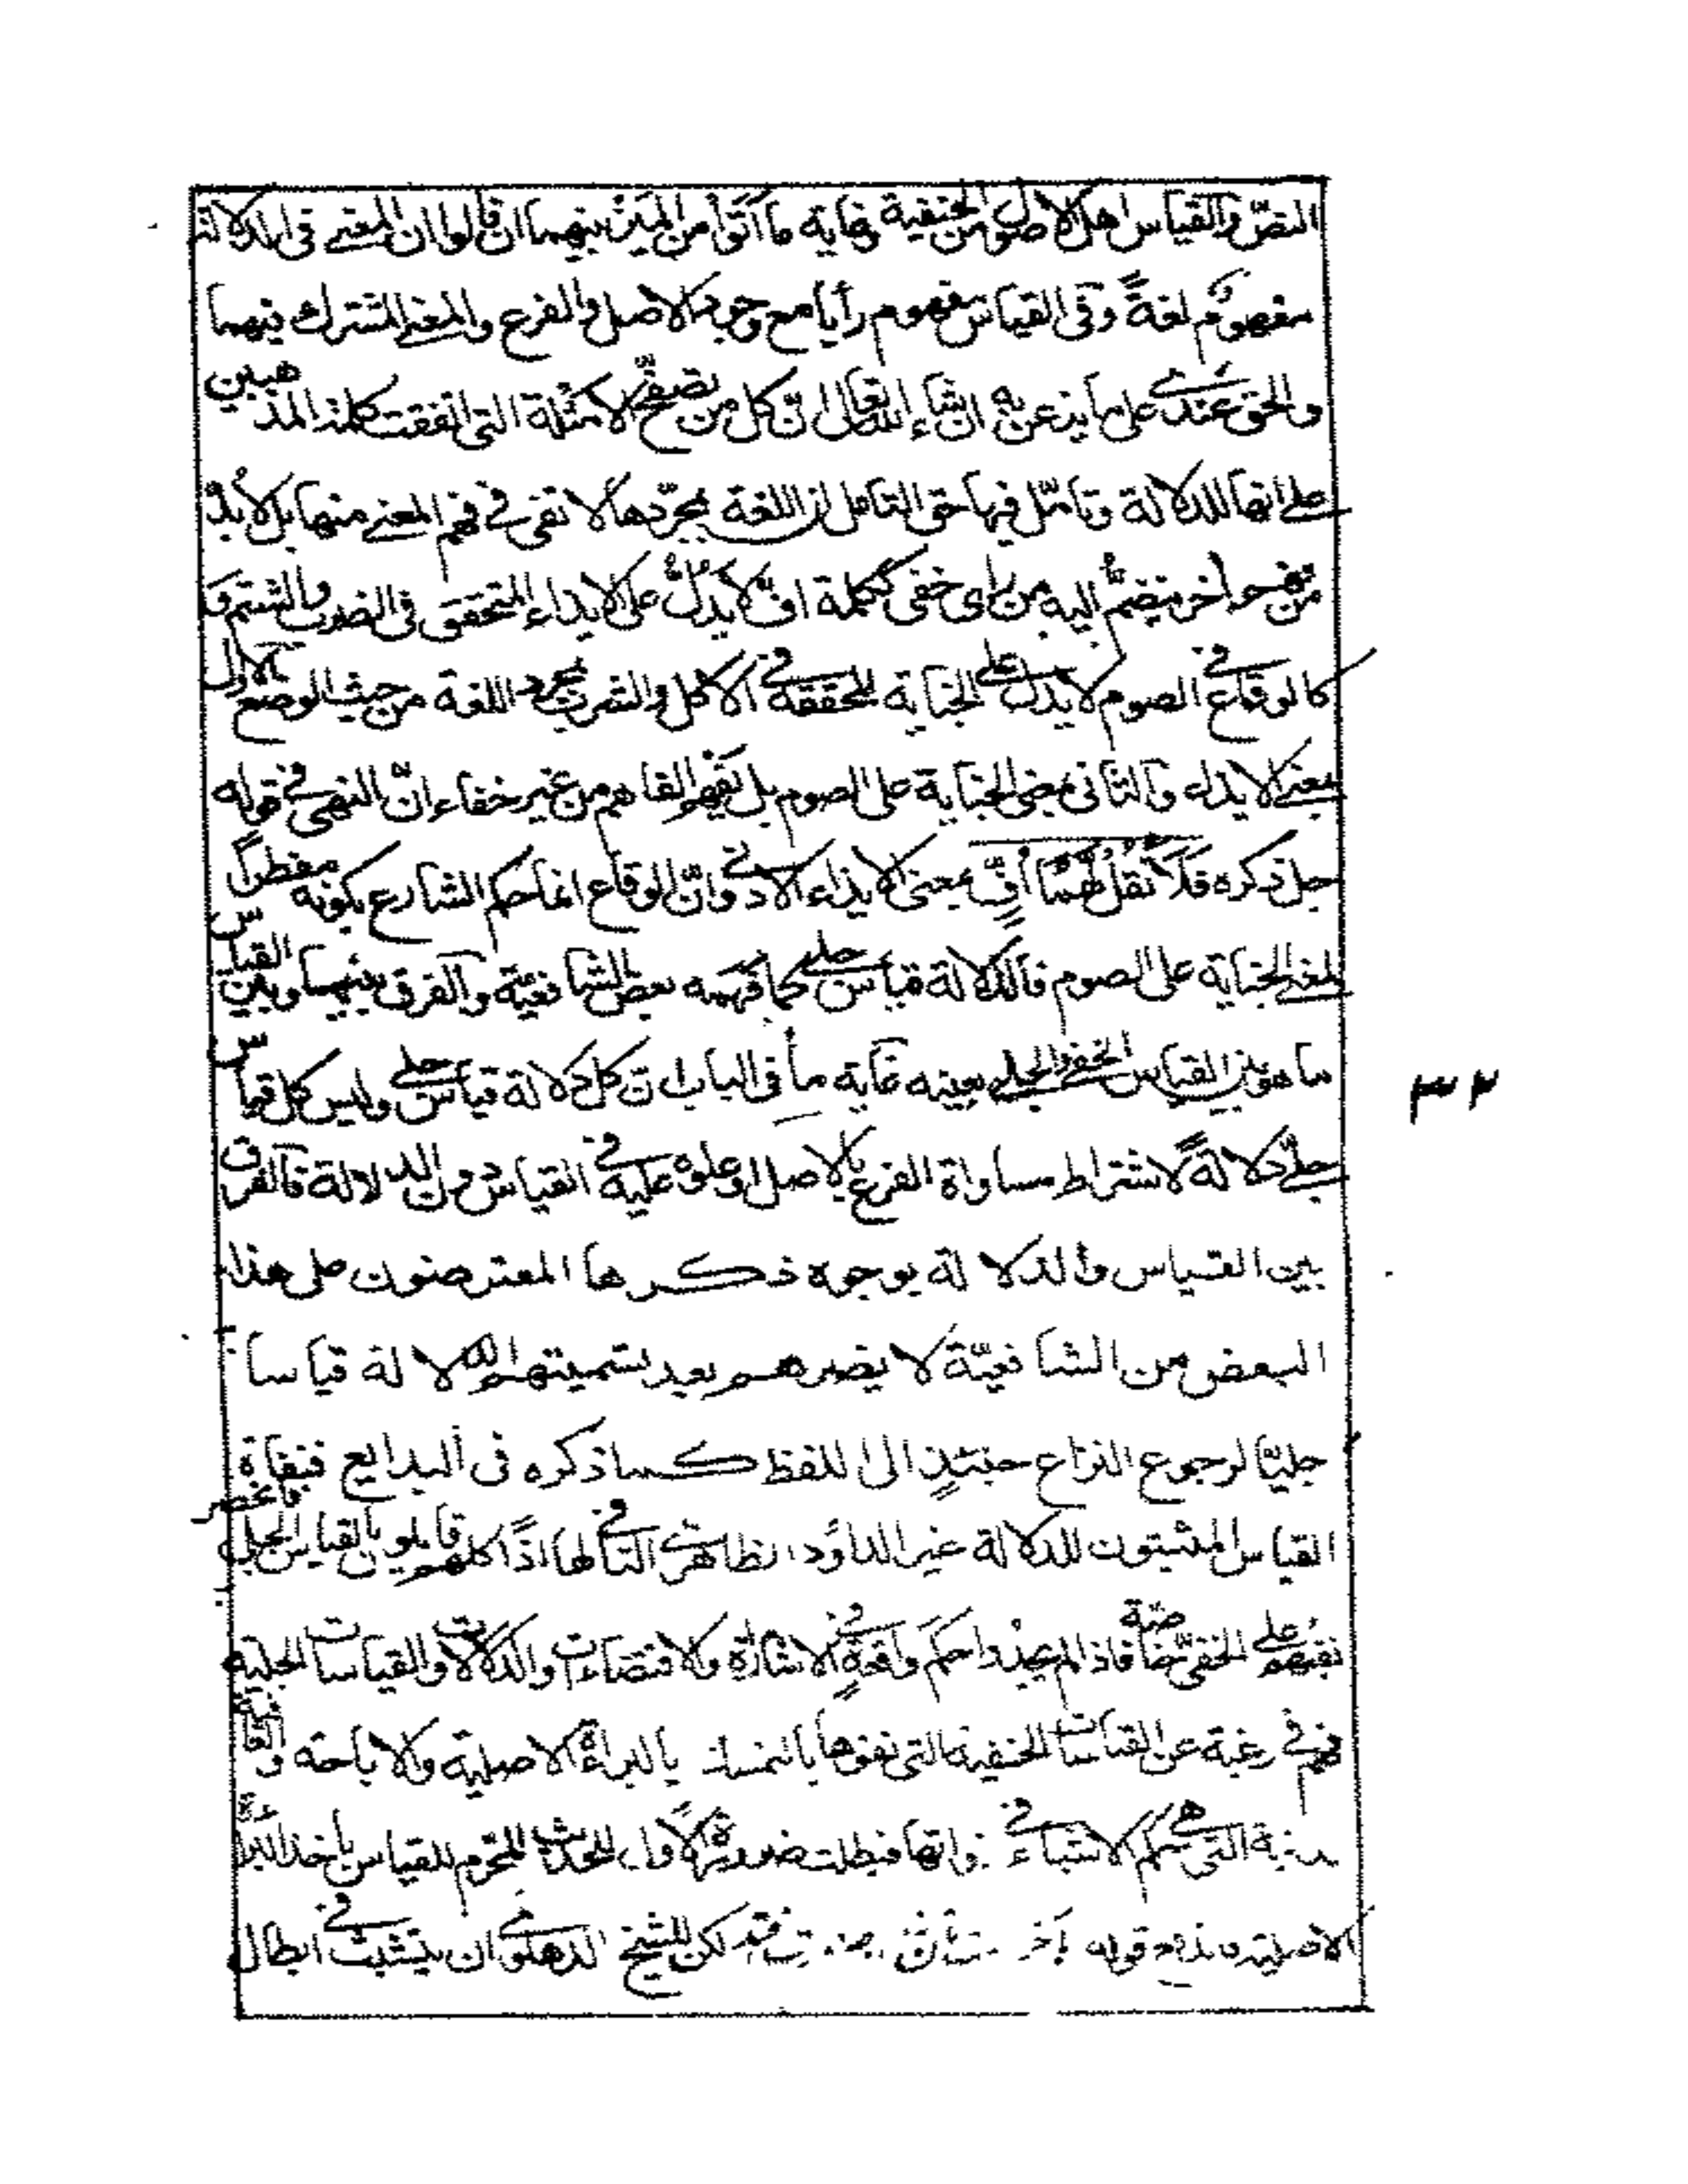 النصّ والقياس اهل الاصول من الحنفية وغاية ما أتوا من الميز بينهما ان قالوا ان المعنى فى الدلالة
مفهوم لغةً وفى القياس مفهوم رأيا مع وجود الاصل والفرع والمعنى المشترك فيهما
والحق عندى على ما يذعن به ان شاء الله تعالى انّ كل من تصفّح الامثلة التى اتفقت كلمة المذهبين
على انها للدلالة وتامّل فيها حق التامل ان اللغة بمجرّدها لا تفى فى فهم المعنى منها بل لا بدّ
من نحو اخر ينضمّ اليه من راى خفى ككلمة افّ لا يدلّ على الايذاء المتحقق فى الضرب والشتم و
كالوقاع فى الصوم لا يدل على الجناية المتحققة فى الاكل والشرب بمجرد اللغة من حيث الوضع الاول
بمعنى الايذاء والثانى بمعنى الجناية على الصوم بل يفهم الفاهم من غير خفاء انّ النهى فى قوله
جل ذكره فَلَا تَقُلْ لَهُمَا أُفٍّ بمعنى الايذاء الادنى وانّ الوقاع انما حكم الشارع بكونه مفطراً
لمعنى الجناية على الصوم فالدلالة قياس جلى كما فهمه بعض الشافعيّة والفرق بينهما وبين القياس
ما هو بين القياس الخفى والجلى بعينه غاية ما فى الباب ان كل دلالة قياس جلى وليس كل قياس
جلىّ دلالةً لاشتراط مساواة الفرع بالاصل او علوه عليه فى القياس دون الدلالة فالفرق
بين القياس والدلالة بوجوه ذكرها المعترضون على هذا
البعض من الشافعيّة لا يضرهم بعد تسميتهم الدلالة قياسا
جليّا لرجوع النزاع حينئذٍ الى اللفظ كما ذكره فى البدايع فنفاة
القياس المثبتون للدلالة غير الداؤد الظاهرى النافى لها اذًا كلهم قايلون بالقياس الجلى فانحصر
نفيهم على الخفىّ خاصّة فاذا لم يجدوا حكم واقعةٍ فى الاشارة والاقتضاءات والدلالات والقياسات الجلية
فهم فى رغبة عن القياسات الخفية التى نفوها بالتمسك بالبراءة الاصلية والاباحة
التى هى حكم الاشياء فى ذواتها فبطلت ضرورة الاول المحرم للقياس باخذ البراءة
الاصلية قوله لكن للشيخ الدهلوى ان يتشبث فى ابطال
٣٢